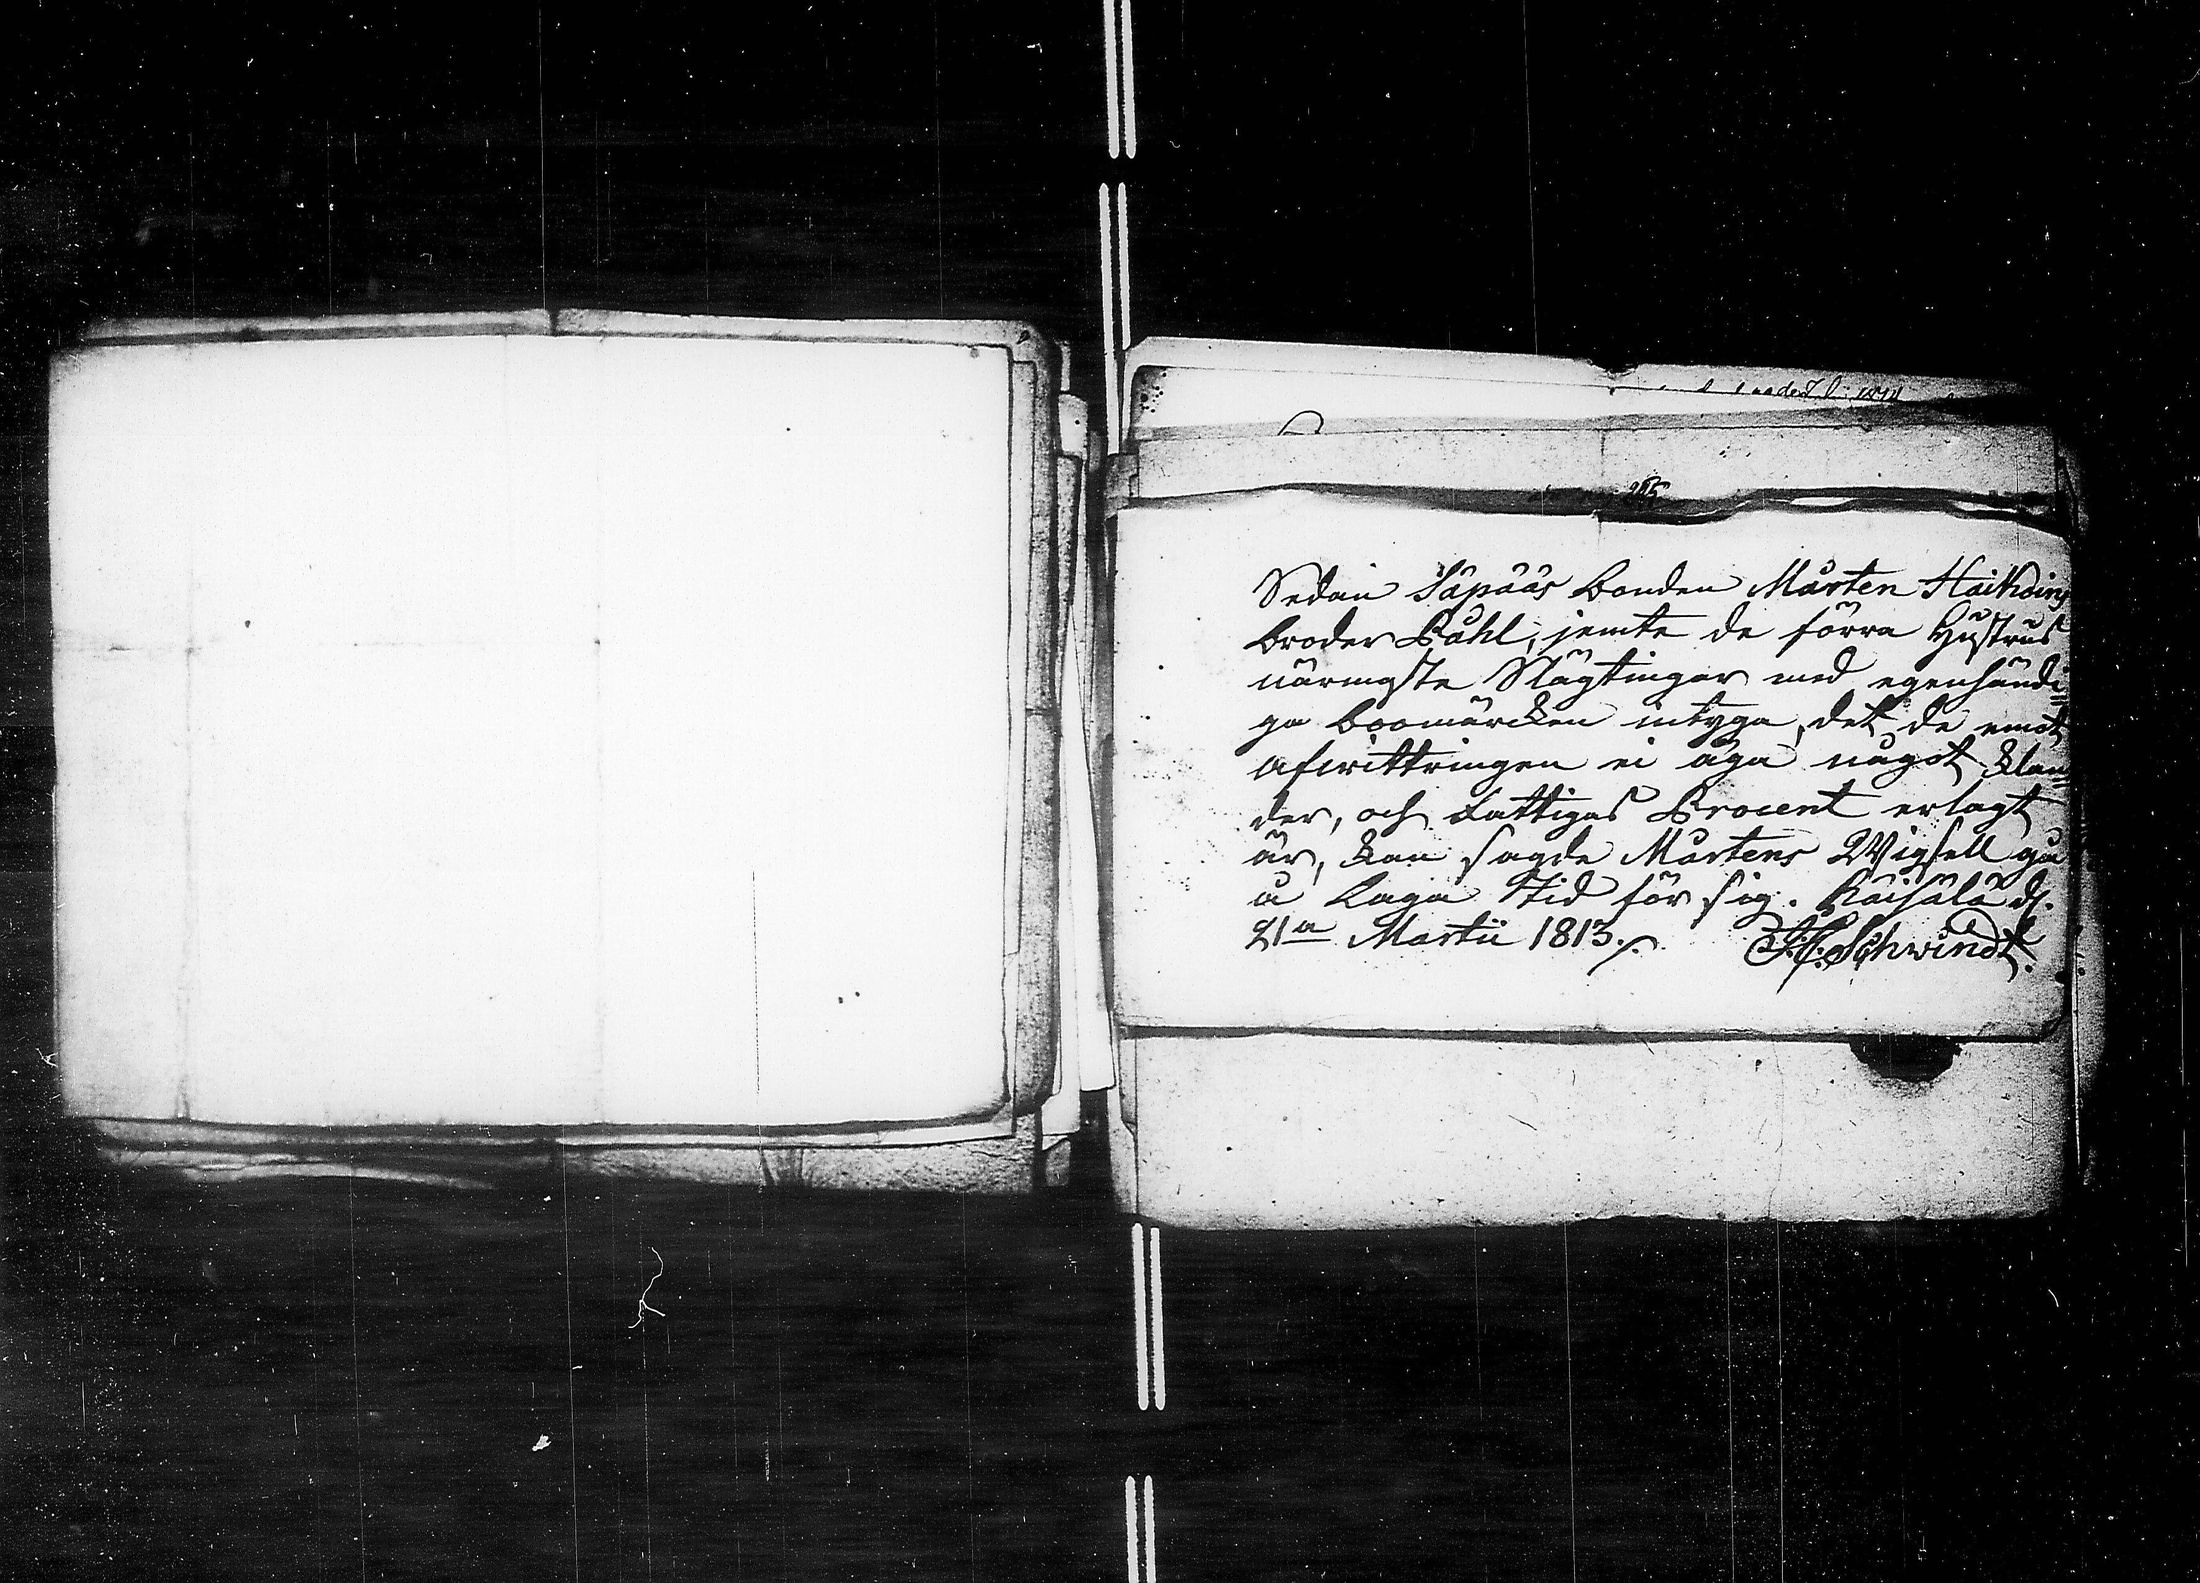 215
Sedan Säpääs bonden Mårten Haikoins
broder Påhl, jemte de förra Hustrus
närmgste Slägtingar med egenhändi=
ga boomärcken intyga, det de emot
afwittringen ei äga något klan=
der, och Fattigas Procent erlagt
är, kan sagde Mårtens Wigsell gå
å Laga tid för sig. Räisälä d.
21a Martii 1813./.
J.C. Schwindt.